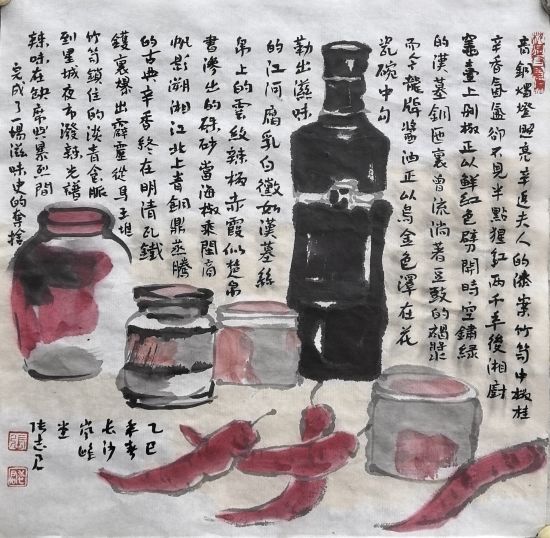 青銅燭燈照亮辛追夫人的漆案竹笥中椒桂
辛香氤氳卻不見半點猩紅兩千年後湘廚
竈臺上剁椒正以鮮紅色劈開時空鏽綠
的漢墓銅匜裏曾流淌著豆豉的褐漿
而今龍牌醬油正以烏金色澤在花
瓷碗中勾
勒出滋味
的江河腐乳白徵如漢墓絲
帛上的雲紋辣椒赤霞似楚帛
書滲出的硃砂當海椒乘閩商
帆影溯湘江北上青銅鼎蒸騰
的古典辛香終在明清孔鐵
鑊裏爆出霹靂從馬王堆
竹笥鎖住的淡青食脈
到星城夜市潑辣光譜
辣味在缺席與暴烈間
完成了一場滋味史的奪捨
乙巳
年春
長沙